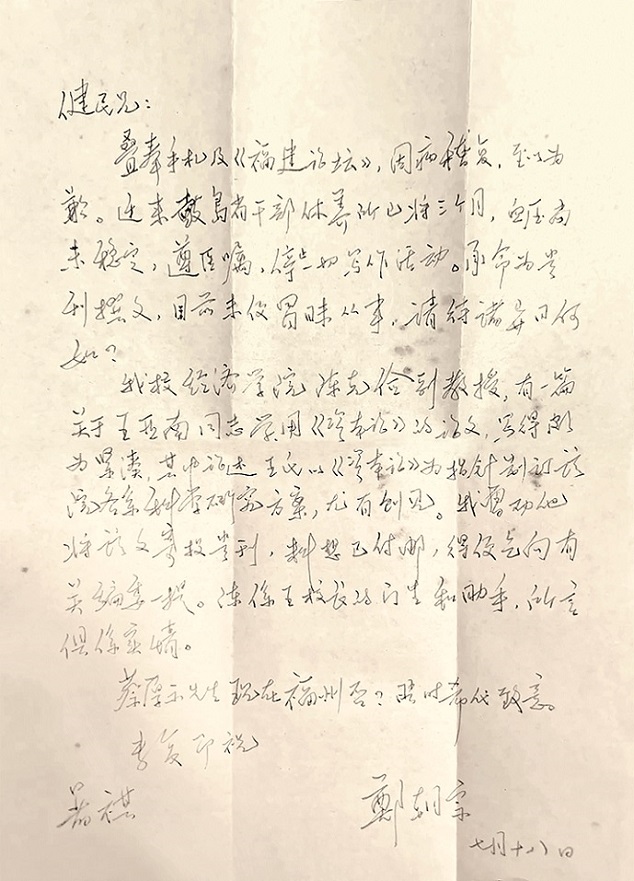 健民兄：
叠奉手札及《福建论坛》，因病稽复，至以为
歉。近来鼓岛省干部休养所已将三个月，血压尚
未稳定，遵医嘱，停止一切写作活动。承命为贵
刊撰文，目前未便冒昧从事，请待诸异日何
如？
我校经济学院陈克俭副教授，有一篇
关于王亚南同志学用《资本论》的论文，写得颇
为紧凑，其中论述王氏以《资本论》为指针制订该
院各系科学研究方案，尤有创见。我曾劝他
将该文寄投贵刊，料想已付邮，得便乞向有
关编委一提。陈系王校长的门生和助手，所言
俱系实情。
蔡厚示先生现在福州否？晤时希代致意。
专复即祝
暑祺
郑朝宗
七月十八日